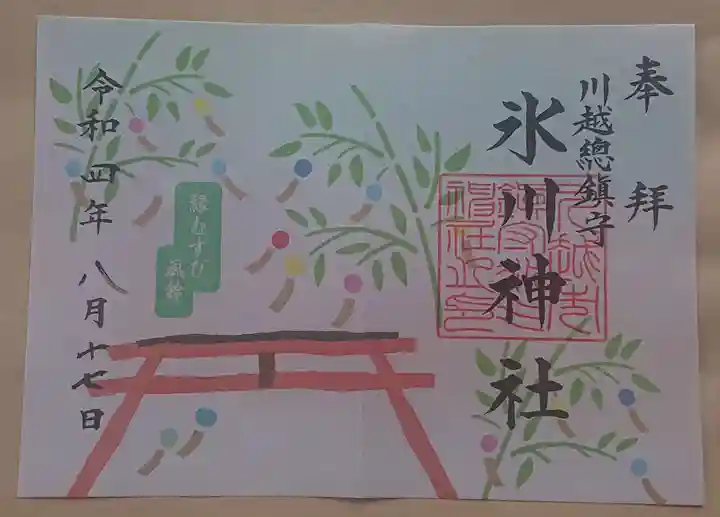 奉拝
川越總鎮守
氷川神社
縁むすび
風鈴
令和四年八月十七日